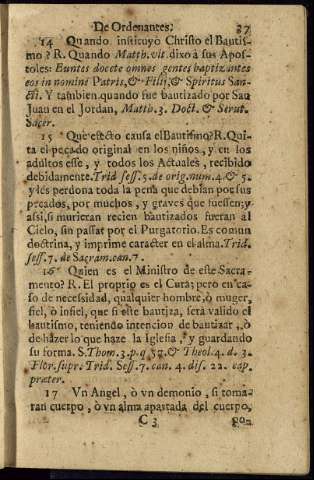 De Ordenantes. 37
14 Quando instituyò Christo el Bautis-
mo? R. Quando Matth. vlt. dixo à sus Apos-
toles: Euntes docete omnes gentes baptizantes
eos in nomine Patris, & Filii, & Spiritus San-
cti. Y tambien quando fue bautizado por San
Juan en el Jordan, Matth. 3. Doct. & Serut.
Sacer.
15 Que efecto causa el Bautismo? R. Qui-
ta el pecado original en los niños, y en los
adultos esse, y todos los Actuales, recibido
debidamente. Trid. sess. 5. de orig. num. 4. & 5.
y les perdona toda la pena que debian por sus
pecados, por muchos, y graves que fuessen; y
assi, si murieran recien bautizados fueran al
Cielo, sin passar por el Purgatorio. Es comun
doctrina, y imprime caracter en el alma. Trid.
sess. 7. de Sacram. can. 7.
16 Quien es el Ministro de este Sacra-
mento? R. El proprio es el Cura; pero en ca-
so de necessidad, qualquier hombre, ò muger,
fiel, ò infiel, que si este bautiza, serà valido el
bautismo, teniendo intencion de bautizar, ò
de hazer lo que haze la Iglesia, y guardando
su forma. S. Thom. 3. p. q. 67. & Theol. 4. d. 3.
Flor. supr. Trid. Sess. 7. can. 4. dis. 22. cap.
præter.
17 Vn Angel, ò vn demonio, si toma-
ran cuerpo, ò vn alma apartada del cuerpo,
C 3 po-